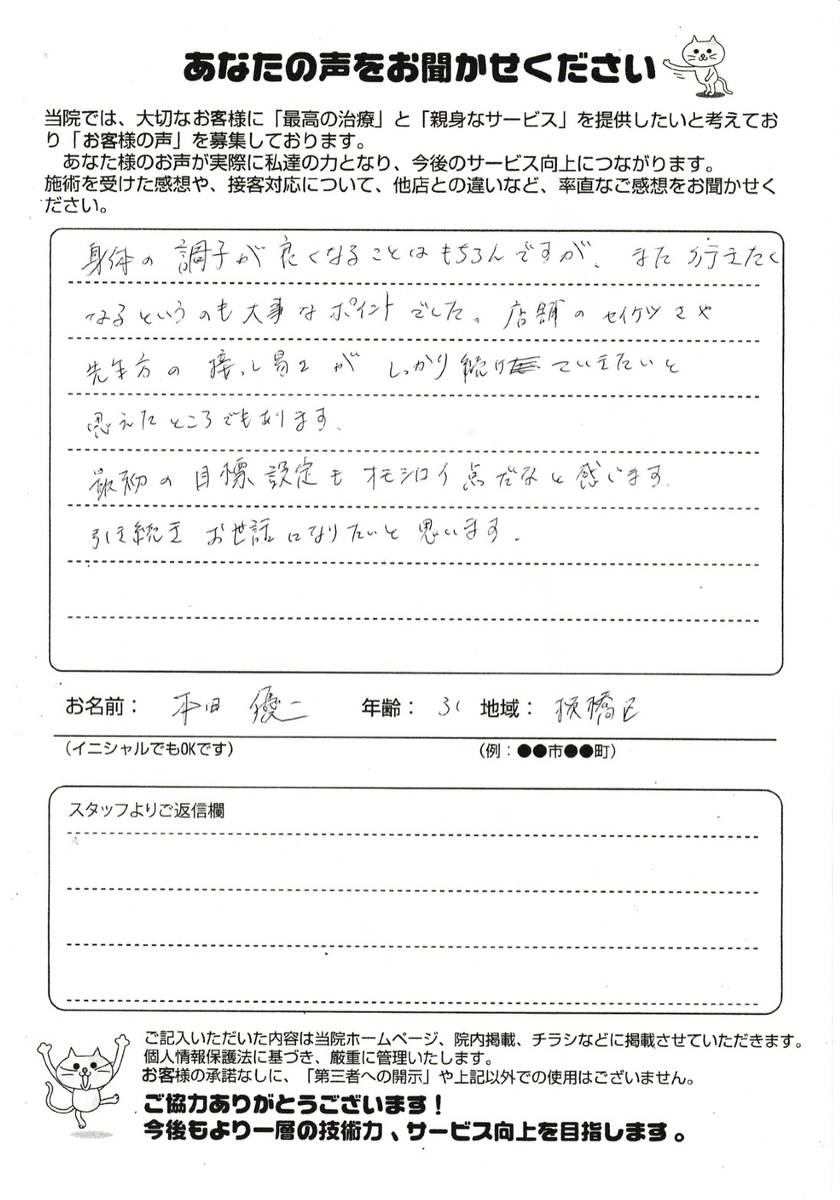 あなたの声をお聞かせください
当院では、大切なお客様に「最高の治療」と「親身なサービス」を提供したいと考えてお
り「お客様の声」を募集しております。
あなた様のお声が実際に私達の力となり、今後のサービス向上につながります。
施術を受けた感想や、接客対応について、他店との違いなど、率直なご感想をお聞かせく
ださい。
身体の調子が良くなることはもちろんですが、また行えたく
なるというのも大事なポイントでした。店舗のセイケツさや
先生方の接し易さがしっかり続けていきたいと
思えたところでもあります。
最初の目標設定もオモシロイ点だなと感じます。
引き続きお世話になりたいと思います。
お名前： 本田 優二 年齢： 31 地域： 板橋区
（イニシャルでもOKです） （例：●●市●●町）
スタッフよりご返信欄
ご記入いただいた内容は当院ホームページ、院内掲載、チラシなどに掲載させていただきます。
個人情報保護法に基づき、厳重に管理いたします。
お客様の承諾なしに、「第三者への開示」や上記以外での使用はございません。
ご協力ありがとうございます！
今後もより一層の技術力、サービス向上を目指します。